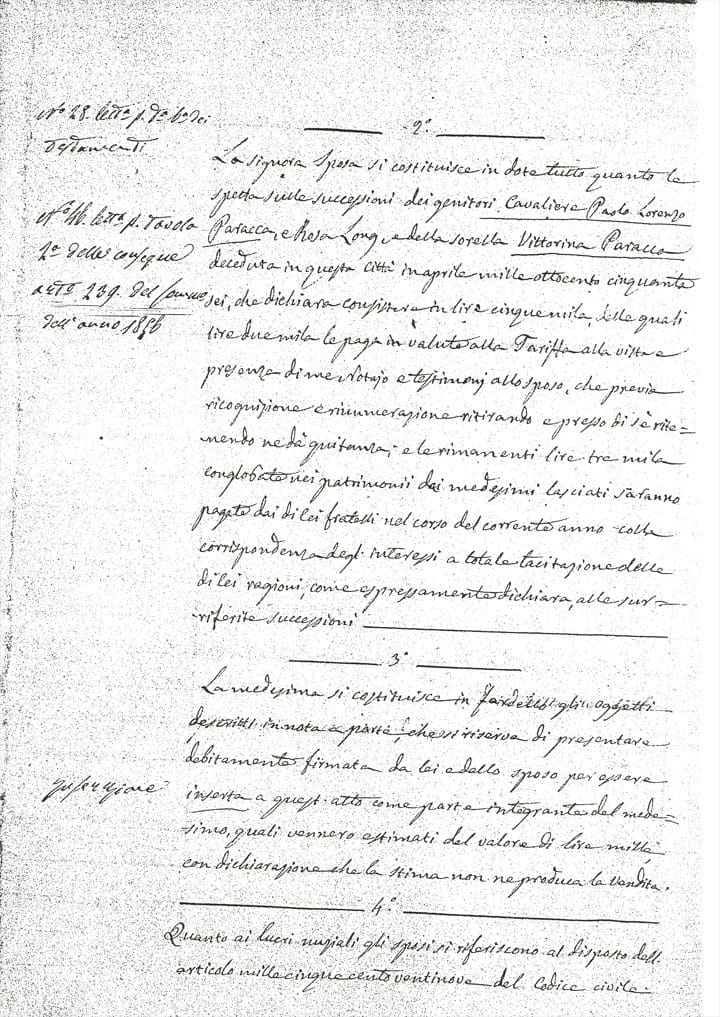 2°
La signora Sposa si costituisce in dote tutto quanto le
spetta sulle successioni dei genitori Cavaliere Paolo Lorenzo
Paracca, e Rosa Longo e della sorella Vittorina Paracca
deceduta in questa Città in aprile mille ottocento cinquanta
sei, che dichiara consistere in lire cinque mila, delle quali
lire due mila le paga in valute alla Tariffa alla vista e
presenza di me Notajo e testimonj allo sposo, che previa
ricognizione e rinumerazione ritirando e presso di sè rite=
nendo ne dà quitanza; e le rimanenti lire tre mila
conglobate nei patrimonii dai medesimi lasciati saranno
pagate dai di lei fratelli nel corso del corrente anno colla
corrispondenza degl'interessi a totale tacitazione delle
di lei ragioni, come espressamente dichiara, alle sur=
riferite successioni
3°
La medesima si costituisce in fardello gli oggetti
descritti in nota a parte, che si riserva di presentare
debitamente firmata da lei e dallo sposo per essere
inserta a quest'atto come parte integrante del mede=
simo, quali vennero estimati del valore di lire mille
con dichiarazione che la stima non ne produca la vendita.
4°
Quanto ai lucri nuziali gli sposi si riferiscono al disposto dell'
articolo mille cinque cento ventinove del Codice civile.
N° 28. lett.a p. 6a dei
Testamenti
N° 16. lett.a p. Tavola
2a delle conseque
art° 239. del
dell'anno 1856